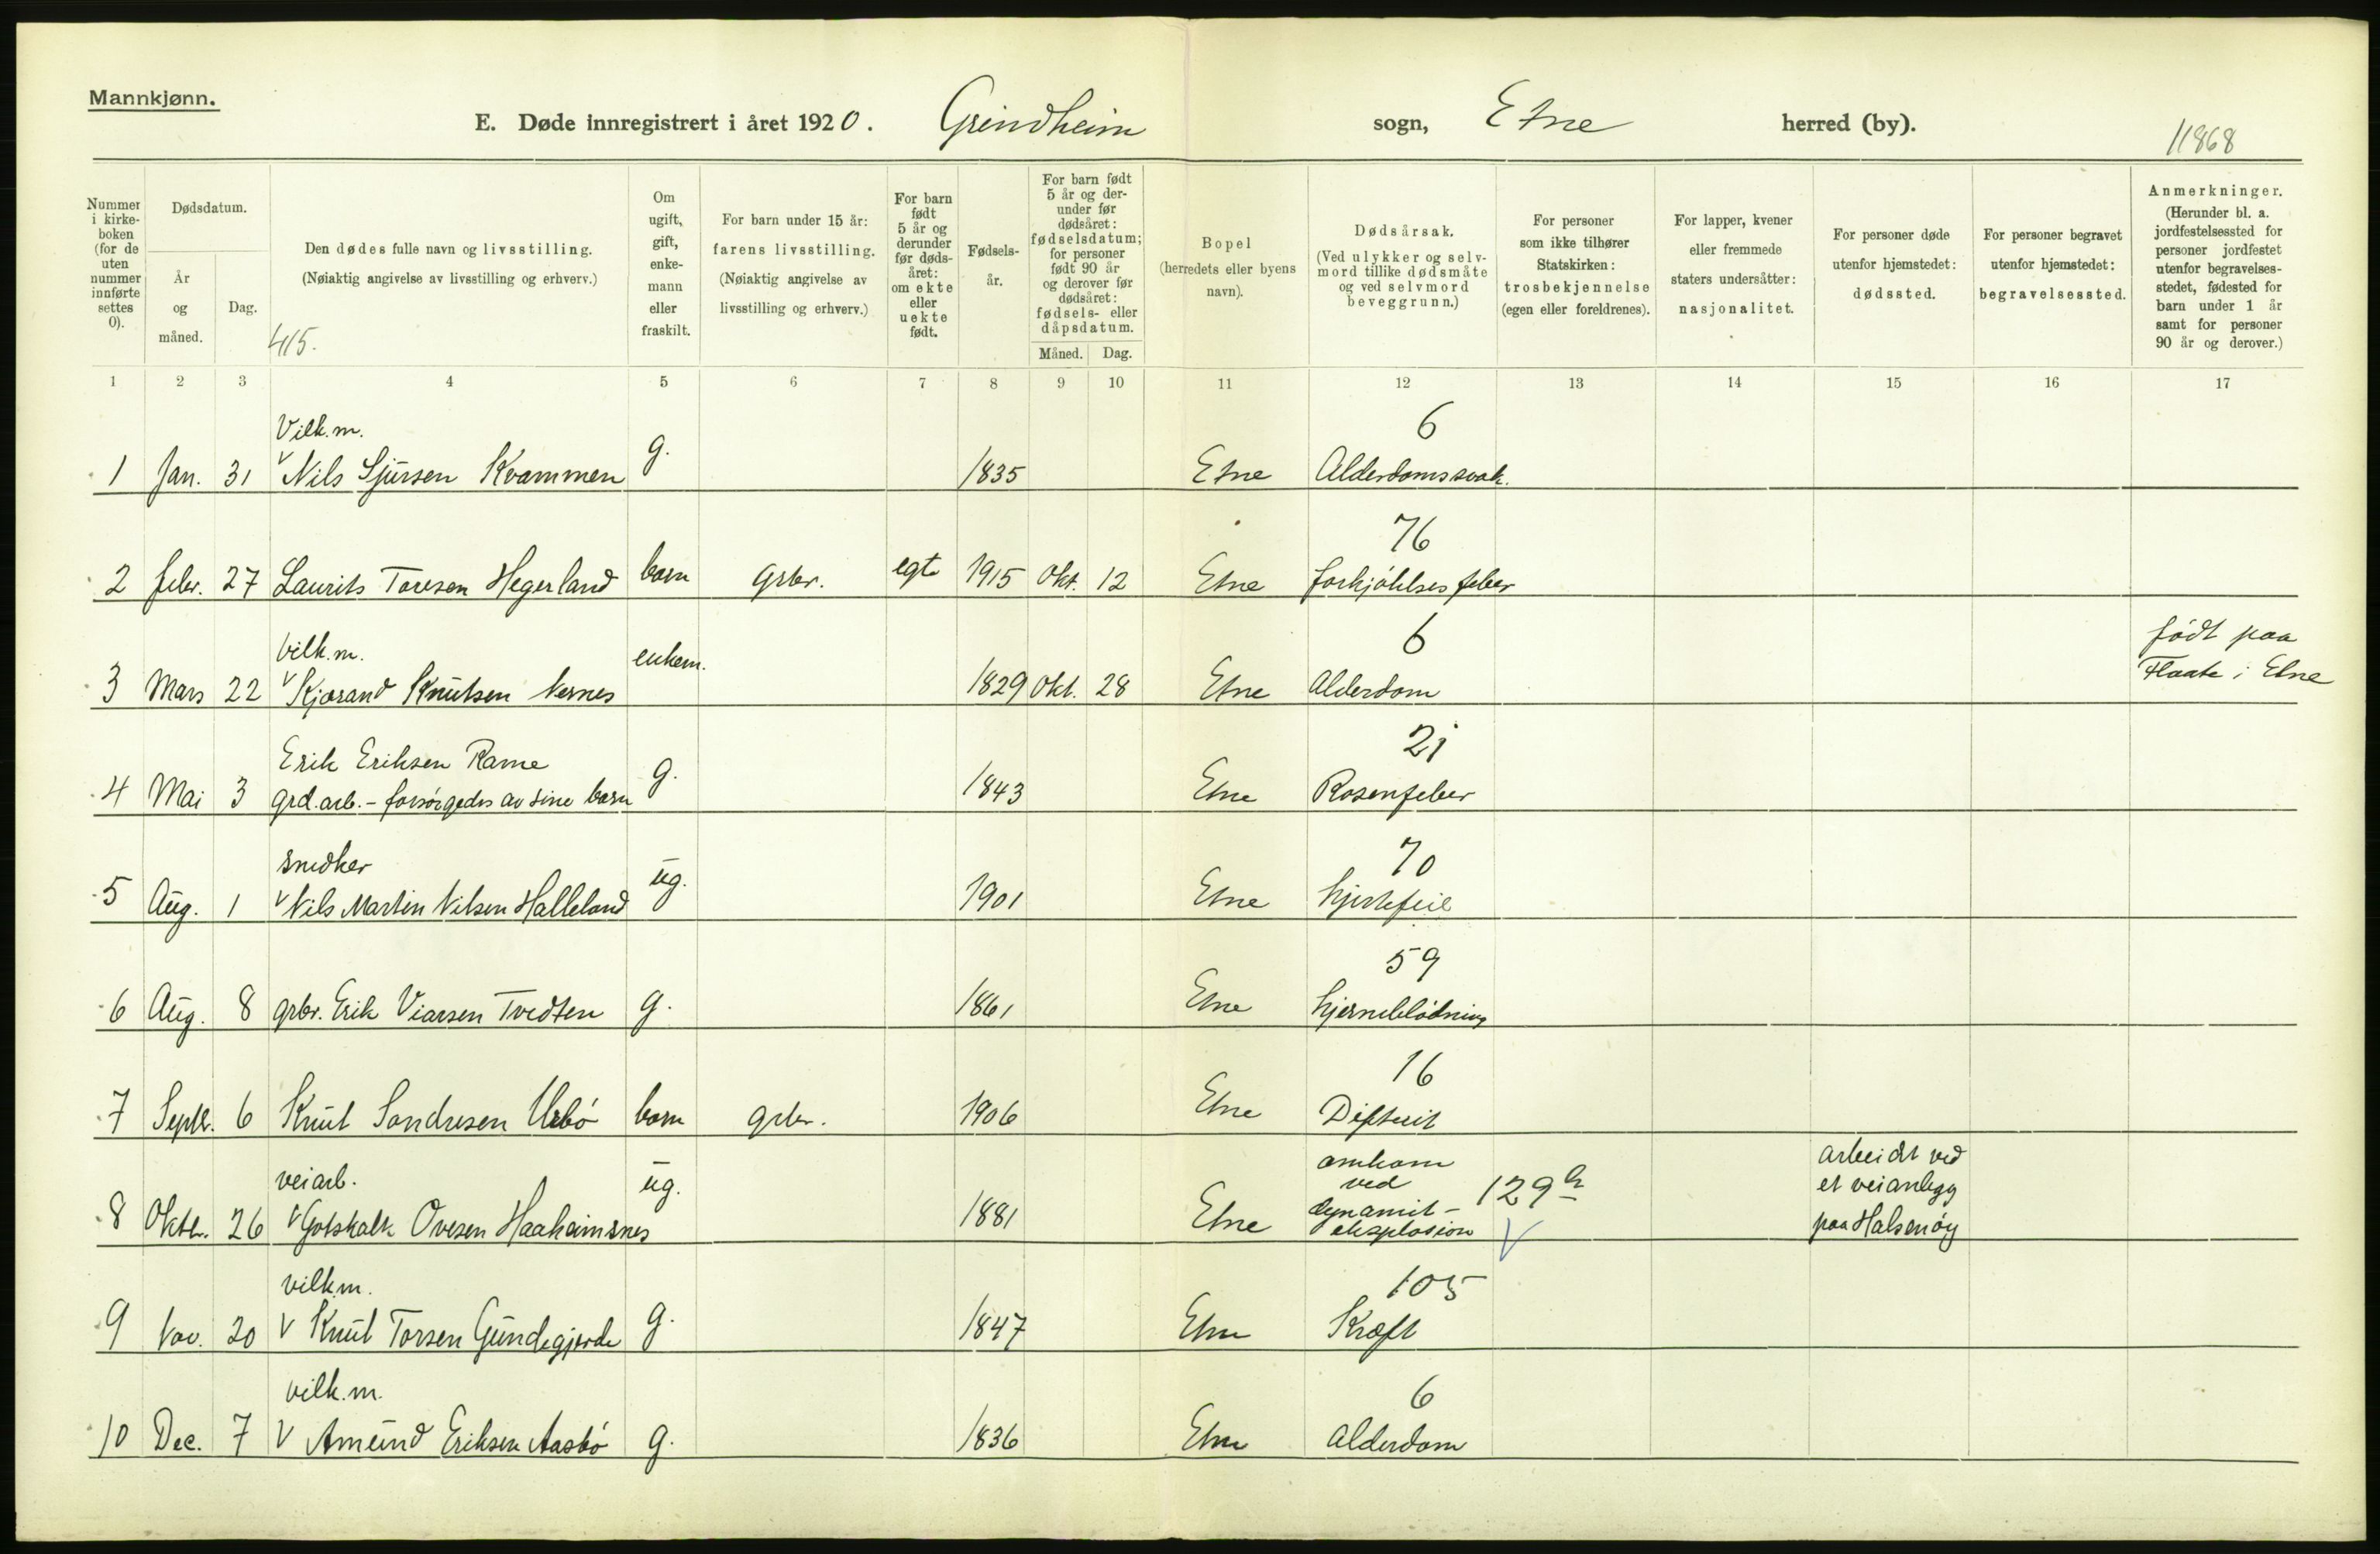 Mannkjønn.
E. Døde innregistrert i året 1920. Grindheim sogn, Etne herred (by).
11868
Nummer i kirke- boken (for de uten nummer innførte settes 0).
Dødsdatum.
År og måned.
Dag.
Den dødes fulle navn og livsstilling.
(Nøiaktig angivelse av livsstilling og erhverv.)
415.
Om ugift, gift, enke- mann eller fraskilt.
For barn under 15 år: farens livsstilling. (Nøiaktig angivelse av livsstilling og erhverv.)
For barn født 5 år og derunder før døds- året: om ekte eller uekte født.
Fødsels- år.
For barn født 5 år og der- under før dødsåret: fødselsdatum; for personer født 90 år og derover før dødsåret: fødsels- eller dåpsdatum.
Måned. Dag.
Bopel (herredets eller byens navn).
Dødsårsak. (Ved ulykker og selv- mord tillike dødsmåte og ved selvmord beveggrunn.)
For personer som ikke tilhører Statskirken: trosbekjennelse (egen eller foreldrenes).
For lapper, kvener eller fremmede staters undersåtter: nasjonalitet.
For personer døde utenfor hjemstedet: dødssted.
For personer begravet utenfor hjemstedet: begravelsessted.
Anmerkninger. (Herunder bl. a. jordfestelsessted for personer jordfestet utenfor begravelses- stedet, fødested for barn under 1 år samt for personer 90 år og derover.)
1 2 3 4 5 6 7 8 9 10 11 12 13 14 15 16 17
Vilk.m. 6
1 Jan. 31 V Nils Sjursen Kvammen g. 1835 Etne Alderdomssvak.
76
2 febr. 27 Laurits Toresen Hegerland barn grbr. egte 1915 Okt. 12 Etne forkjølelsesfeber
vilk.m. enkem. 6 født paa
3 Mars 22 V Kjærand Knutsen Nernes 1829 Okt. 28 Etne Alderdom Flaate i Etne
Erik Eriksen Rame 21
4 Mai 3 grd.arb. - forsørgedes av sine barn g. 1843 Etne Rosenfeber
snedker 70
5 Aug. 1 V Nils Martin Nilsen Halleland ug. 1901 Etne hjertefeil
59
6 Aug. 8 grbr. Erik Viarsen Tvedten g. 1861 Etne hjerneblødning
16
7 Septr. 6 Knut Sandresen Urbø barn grbr. 1906 Etne Difterit
veiarb. ug. omkom ved 129 arbeidt ved et veianlegg
8 Oktbr. 26 V Gotskalk Ovesen Haaheimsnes 1881 Etne dynamit- eksplosion V paa Halsnøy
vilk.m. 105
9 Nov. 20 V Knut Torsen Gundegjerde g. 1847 Etne Kræft
vilk.m. 6
10 Dec. 7 V Amund Eriksen Aasbø g. 1836 Etne Alderdom